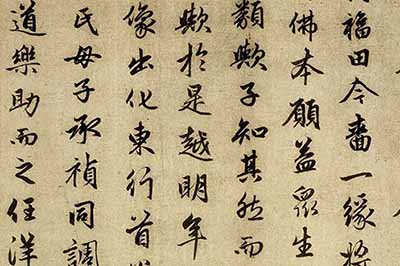 福田今一緣將
佛本願益眾生
類歟子知其然而
歟於是越明年
像出化東行首
氏母子承禎同調
道樂助而之任洋